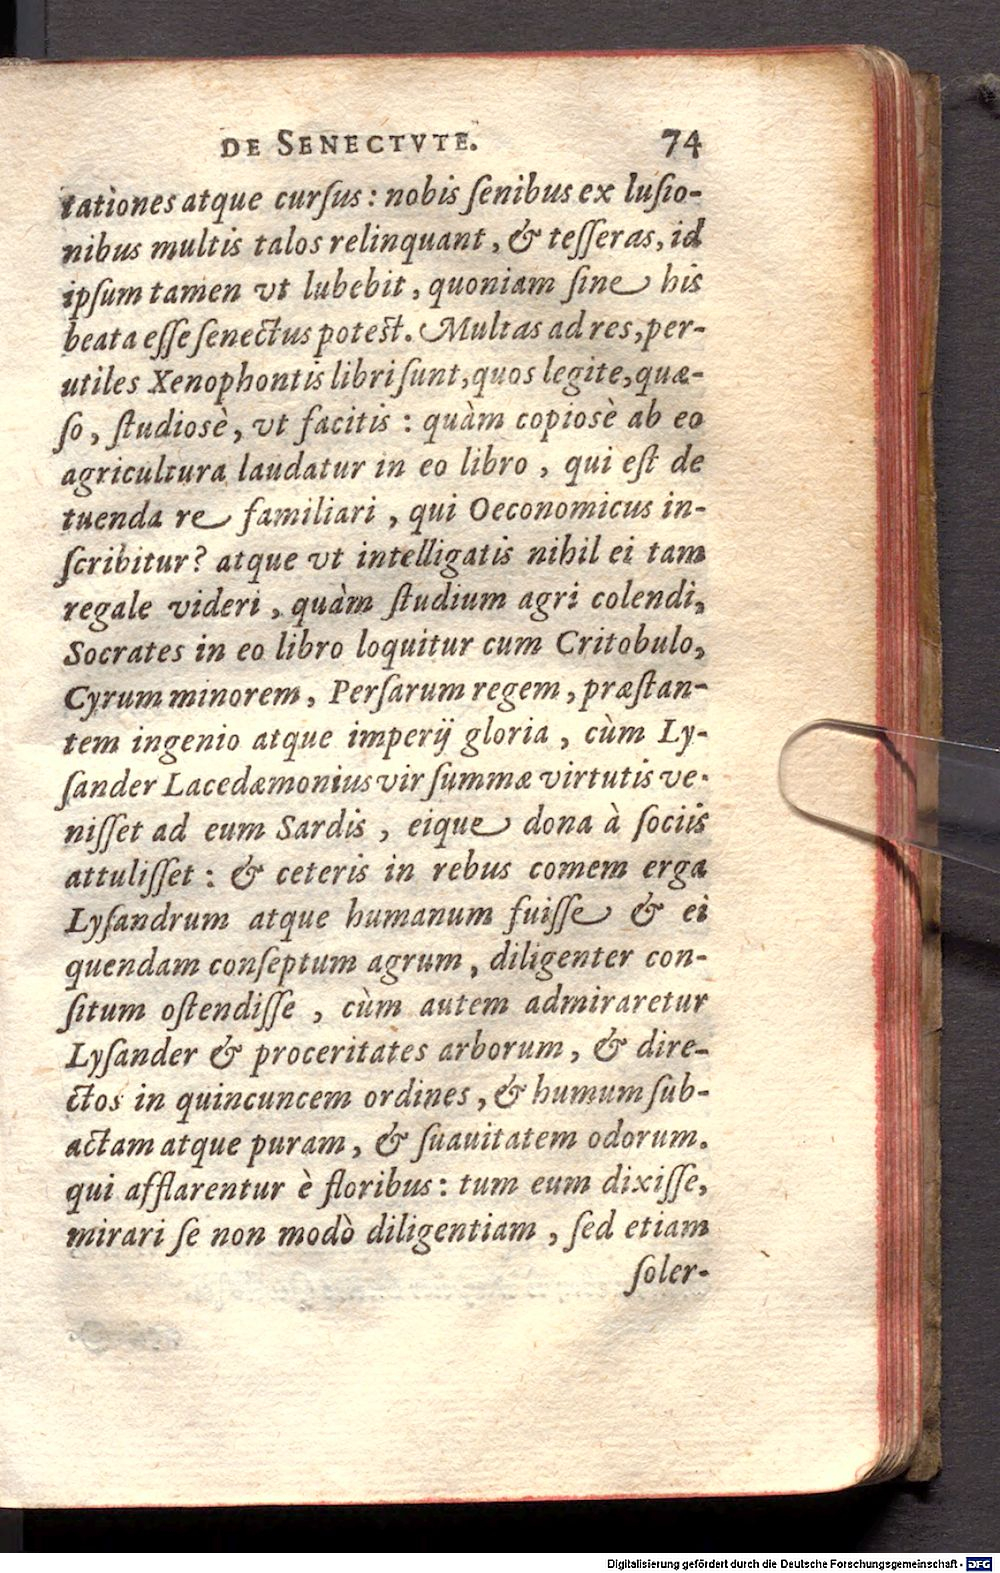 DE SENECTVTE. 74
tationes atque curſus: nobis ſenibus ex luſio-
nibus multis talos relinquant, & teſſeras, id
ipſum tamen vt lubebit, quoniam ſine his
beata eſſe ſenectus poteſt. Multas ad res, per-
utiles Xenophontis libri ſunt, quos legite, quæ-
ſo, ſtudiosè, vt facitis: quàm copiosè ab eo
agricultura laudatur in eo libro, qui eſt de
tuenda re familiari, qui Oeconomicus in-
ſcribitur? atque vt intelligatis nihil ei tam
regale videri, quàm ſtudium agri colendi,
Socrates in eo libro loquitur cum Critobulo,
Cyrum minorem, Perſarum regem, præſtan-
tem ingenio atque imperij gloria, cùm Ly-
ſander Lacedæmonius vir ſummæ virtutis ve-
niſſet ad eum Sardis, eique dona à ſociis
attuliſſet: & ceteris in rebus comem erga
Lyſandrum atque humanum fuiſſe & ei
quendam conſeptum agrum, diligenter con-
ſitum oſtendiſſe, cùm autem admiraretur
Lyſander & proceritates arborum, & dire-
ctos in quincuncem ordines, & humum ſub-
actam atque puram, & ſuauitatem odorum.
qui afflarentur è floribus: tum eum dixiſſe,
mirari ſe non modò diligentiam, ſed etiam
ſoler-
Digitalisierung gefördert durch die Deutsche Forschungsgemeinschaft - DFG